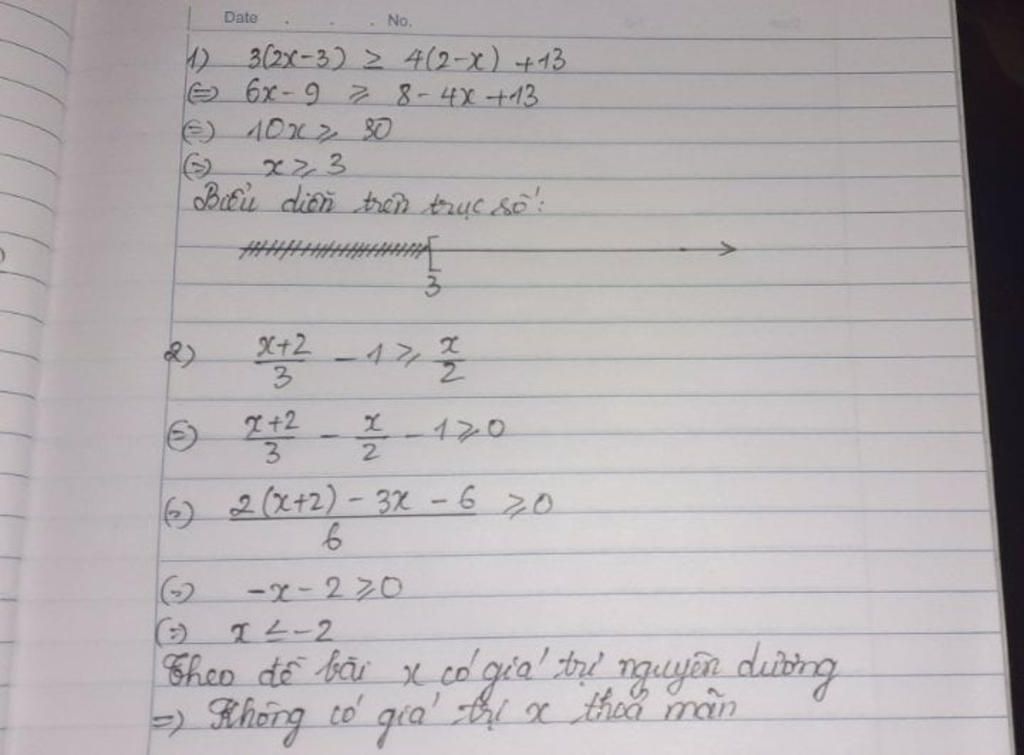 Date . . . No.
1) 3(2x-3) ≥ 4(2-x) +13
⇔ 6x - 9 ≥ 8 - 4x +13
⇔ 10x ≥ 30
⇔ x ≥ 3
Biểu diễn trên trục số:
3
2) \frac{x+2}{3} - 1 ≥ \frac{x}{2}
⇔ \frac{x+2}{3} - \frac{x}{2} - 1 ≥ 0
⇔ \frac{2(x+2) - 3x - 6}{6} ≥ 0
⇔ -x - 2 ≥ 0
⇔ x ≤ -2
Theo đề bài x có giá trị nguyên dương
=> Không có giá trị x thoả mãn